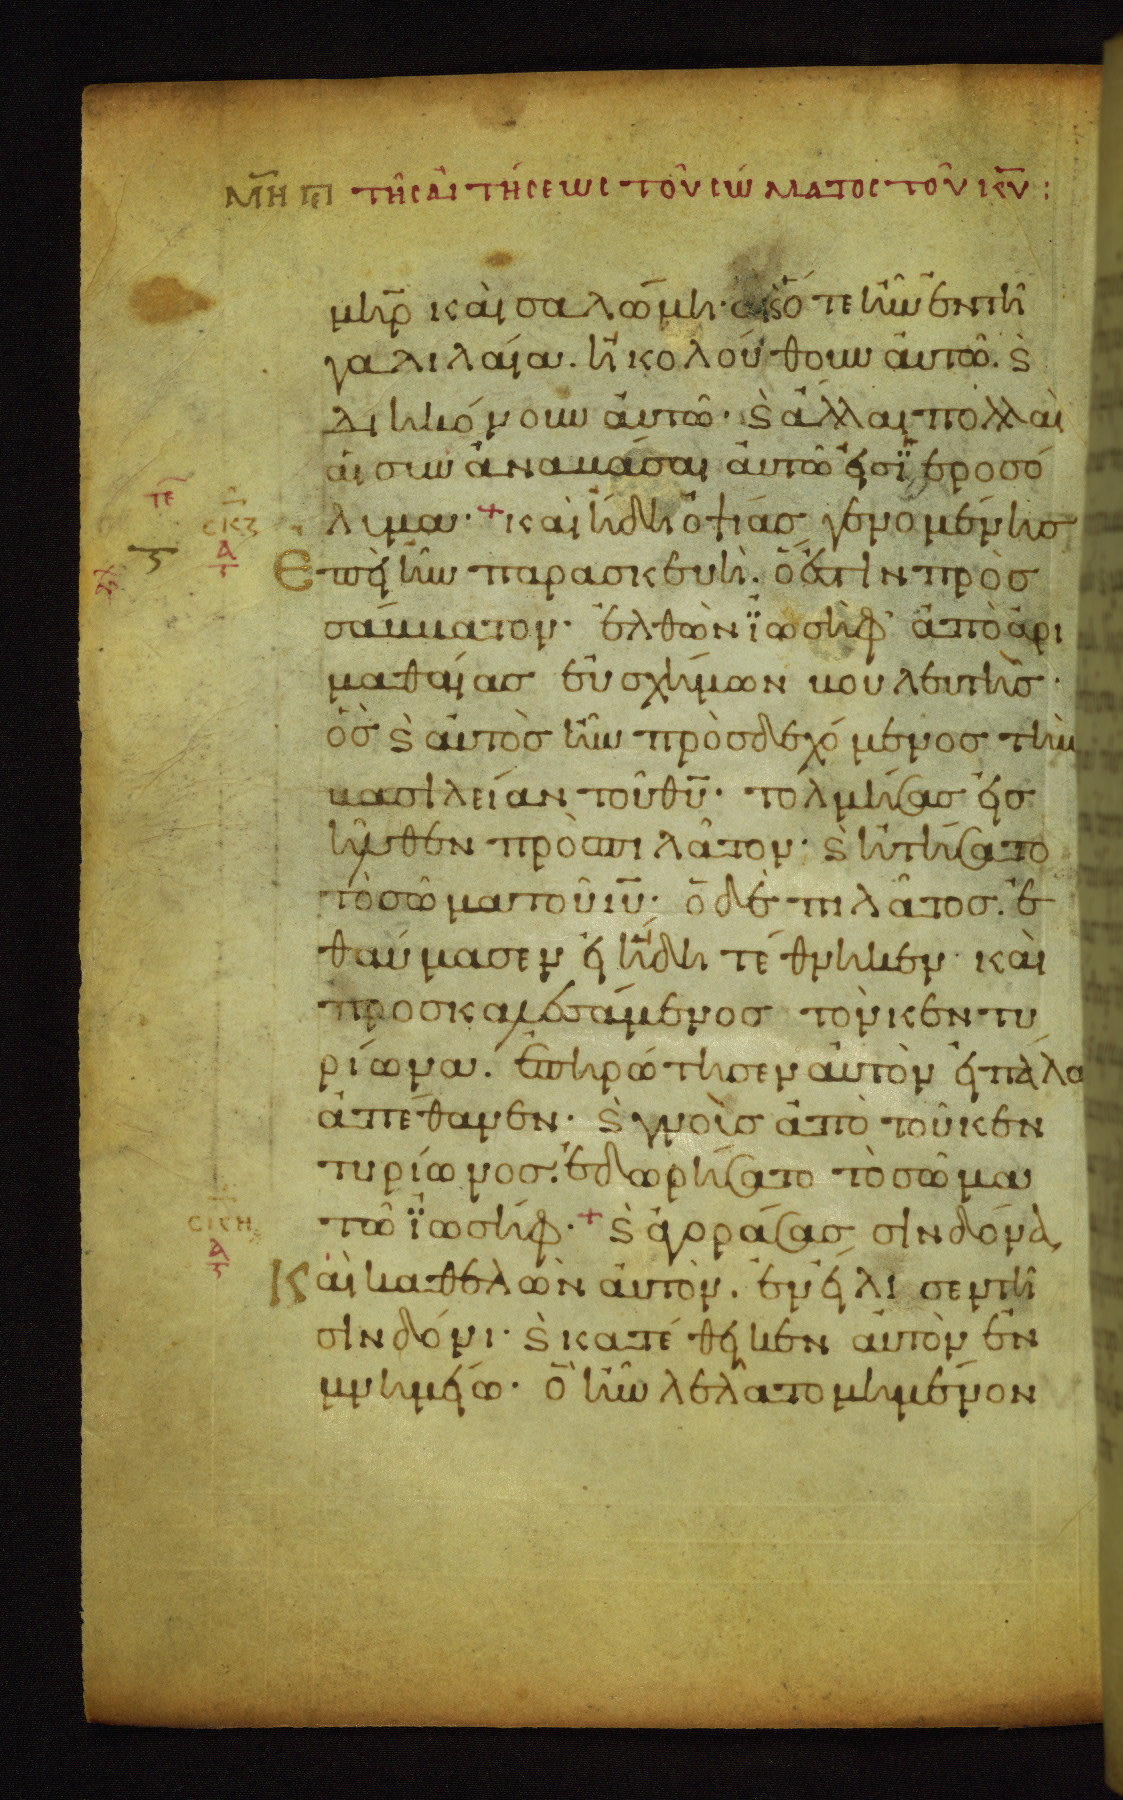 ΜΗ ΤΗϹ ΑΙΤΗϹΕΩϹ ΤΟΥ ϹΩΜΑΤΟϹ ΤΟΥ ΚΥ :
μ̅η̅ρ̅ καὶ σαλώμη· ὅτε ἦν ἐν τῆ
γαλιλαία. ἠκολούθουν αὐτῶ. ϗ
διηκόνουν αὐτῶ· ϗ ἄλλαι πολλαὶ
αἱ συναναβᾶσαι αὐτῶ εἰς ϊεροσό
λυμα· + καὶ ἤδη ὀψίας γενομένης
Ἐπεὶ ἦν παρασκευὴ. ὅ ἐστιν πρὸς
σάββατον· ἐλθὼν ϊωσὴφ ἀπὸ ἀρι
μαθαίας εὐσχήμων βουλευτὴς·
ὃς ϗ αὐτὸς ἦν προσδεχόμενος τὴν
βασιλείαν τοῦ θ̅υ̅· τολμήσας εἰσ
ῆλθεν πρὸς πιλᾶτον· ϗ ἠτήσατο
τὸ σῶμα τοῦ ι̅υ̅· ὁ δὲ πιλᾶτος. ἐ
θαύμασεν εἰ ἤδη τέθνηκεν καὶ
προσκαλεσάμενος τὸν κεντυ
ρίωνα. ἐπηρώτησεν αὐτὸν εἰ πάλα
ἀπέθανεν· ϗ γνοὺς ἀπὸ τοῦ κεν
τυρίωνος. ἐδωρήσατο τὸ σῶμα
τῶ ϊωσήφ· + ϗ ἀγοράσας σινδόνα
Καὶ καθελὼν αὐτὸν. ἐνείλισεν τῆ
σινδόνι· ϗ κατέθηκεν αὐτὸν ἐν
μνημείω· ὃ ἦν λελατομημένον
τε
ϲκζ
Α
ϲκη
Α